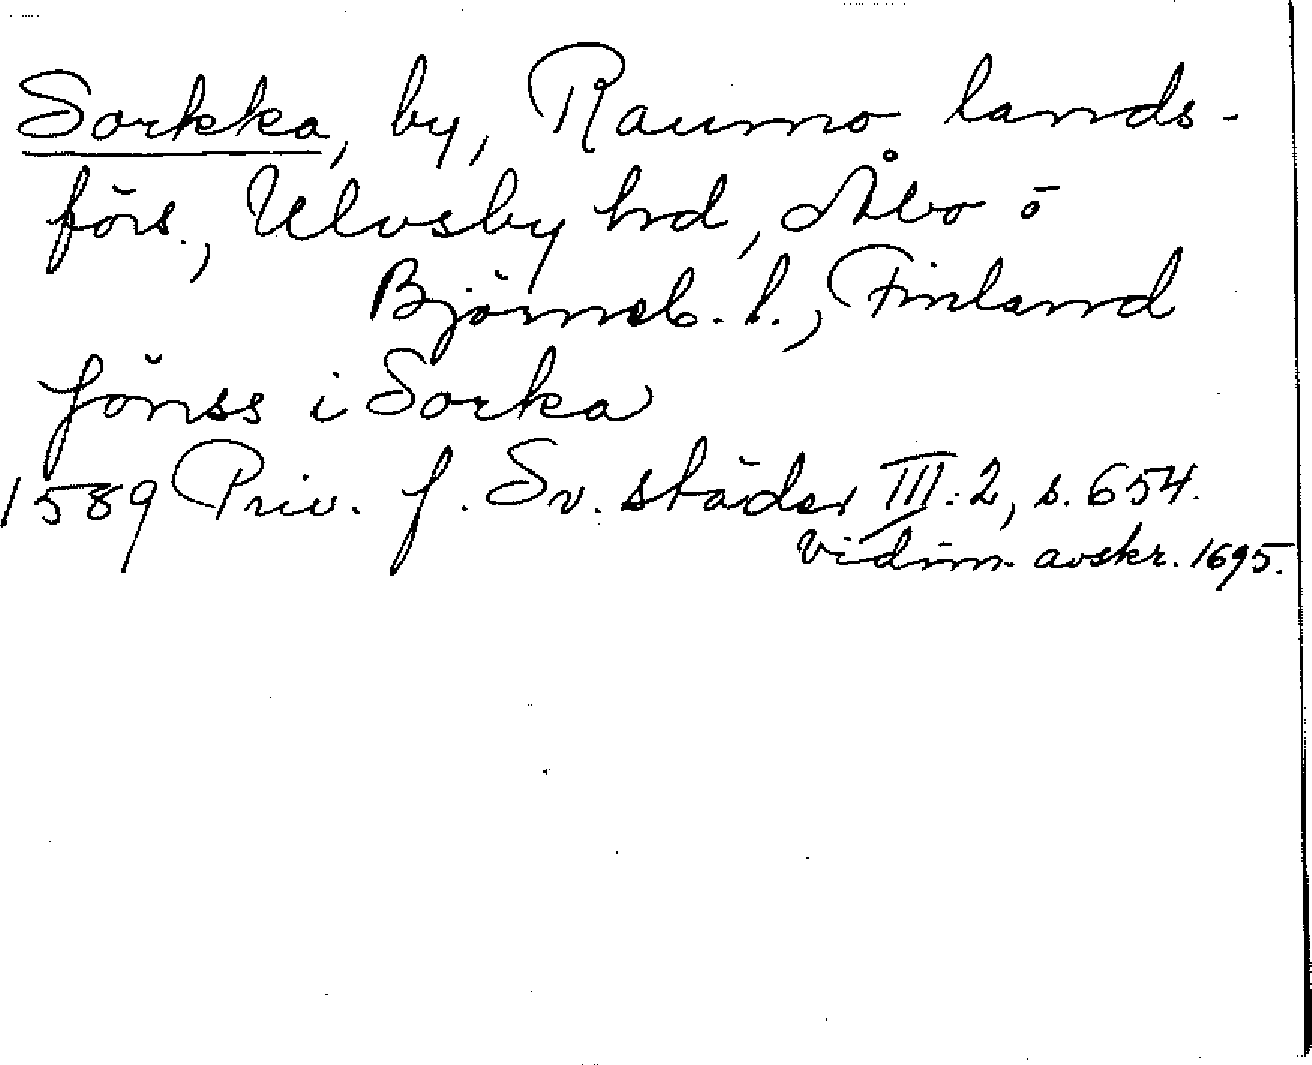 Sorkka, by, Raumo lands-
förs., Ulvsby hrd, Åbo ö
Björneb. l., Finland
Jönss i Sorka
1589 Priv. f. Sv. städer III:2, s. 654.
Vidim. avskr. 1695.